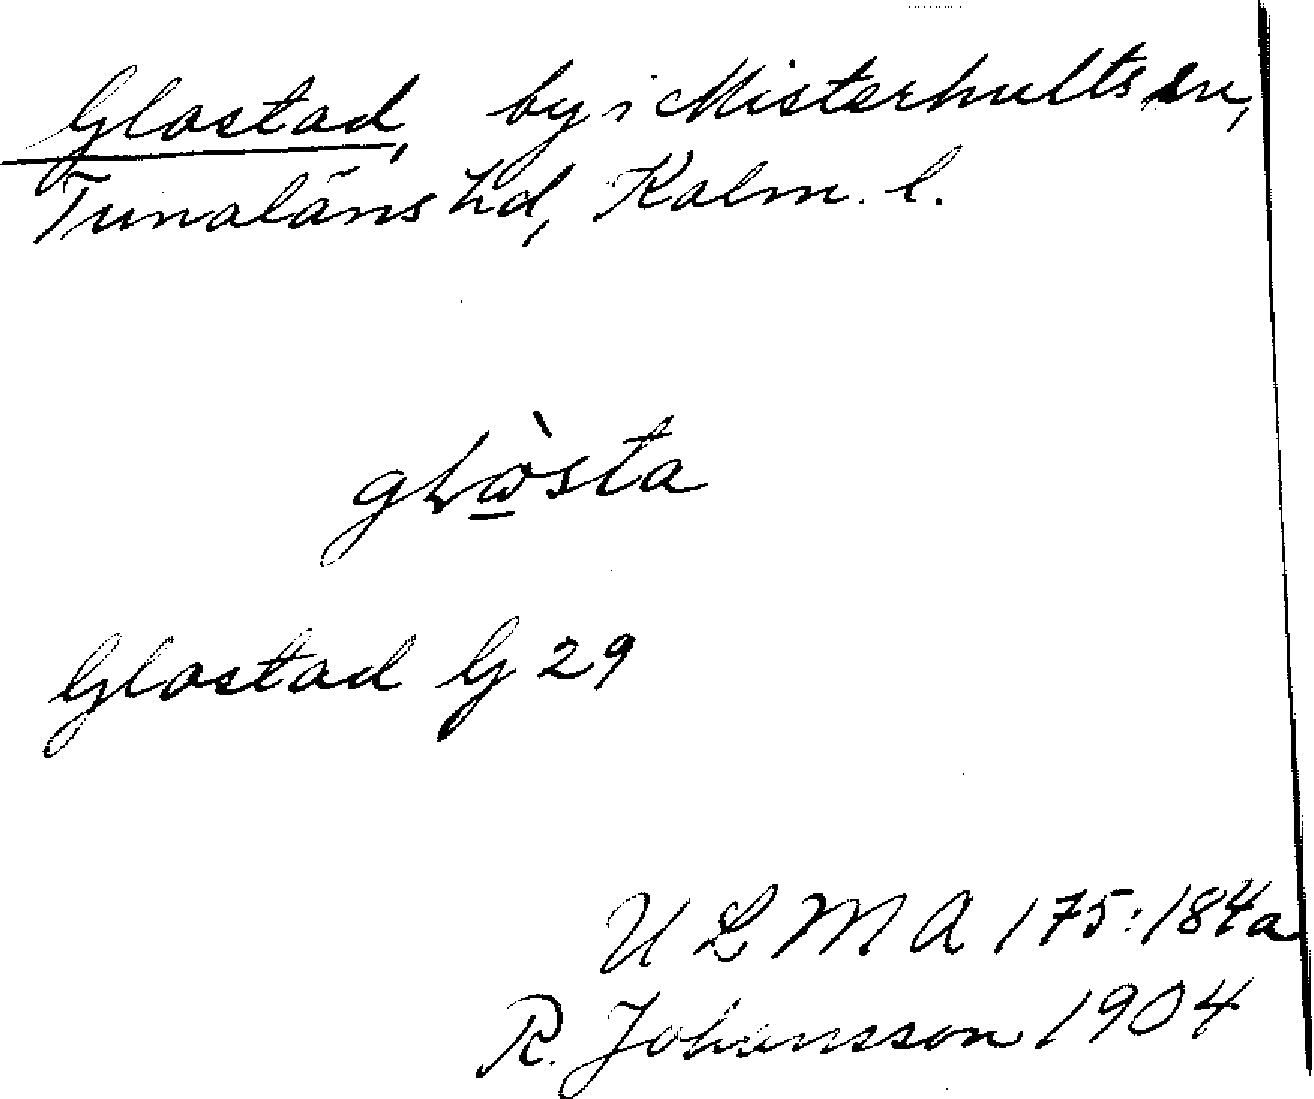 Glostad, by i Misterhults sn,
Tunaläns hd, Kalm. l.
Glostad G 29
U L M A 175:184a
R. Johansson 1904